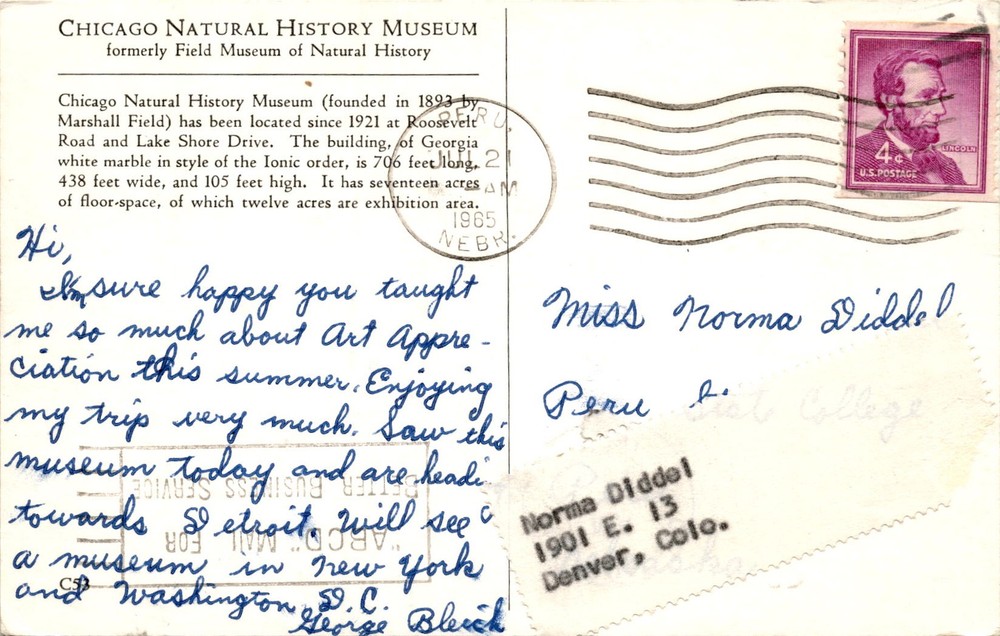 CHICAGO NATURAL HISTORY MUSEUM
formerly Field Museum of Natural History
Chicago Natural History Museum (founded in 1893 by
Marshall Field) has been located since 1921 at Roosevelt
Road and Lake Shore Drive. The building, of Georgia
white marble in style of the Ionic order, is 706 feet long,
438 feet wide, and 105 feet high. It has seventeen acres
of floor-space, of which twelve acres are exhibition area.
PERU,
JUL 21
AM
1965
NEBR.
LINCOLN
4¢
U.S. POSTAGE
Hi,
I'm sure happy you taught
me so much about Art Appre-
ciation this summer. Enjoying
my trip very much. Saw this
museum today and are headi
towards Detroit. Will see
a museum in New York
and Washington, D.C.
George Bleich
C53
"ABCD" MAIL FOR
BETTER BUSINESS SERVICE
Miss Norma Diddel
Peru State College
Norma Diddel
1901 E. 13
Denver, Colo.